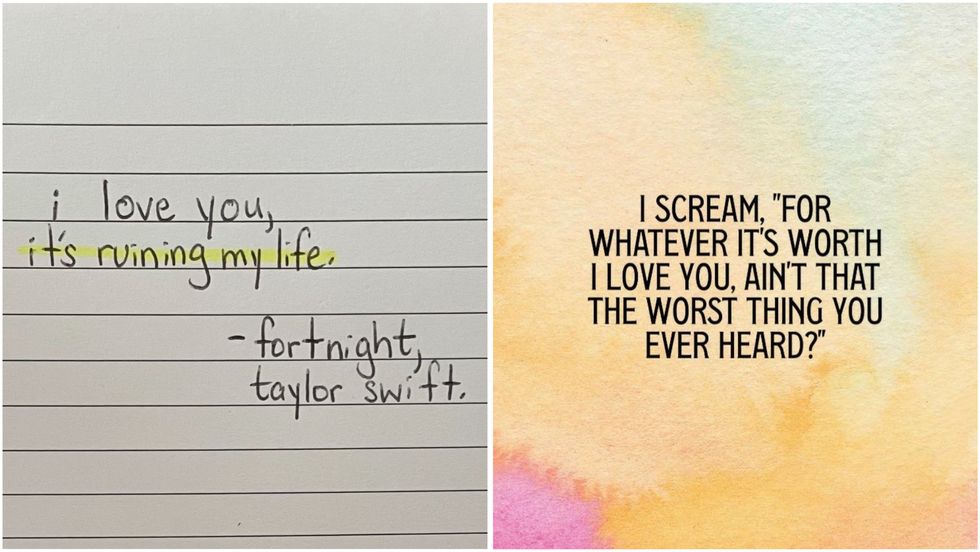 i love you,
it's ruining my life.
- fortnight,
taylor swift.
I SCREAM, "FOR
WHATEVER IT'S WORTH
I LOVE YOU, AIN'T THAT
THE WORST THING YOU
EVER HEARD?"